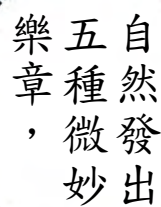 自然發出
五種微妙
樂章，